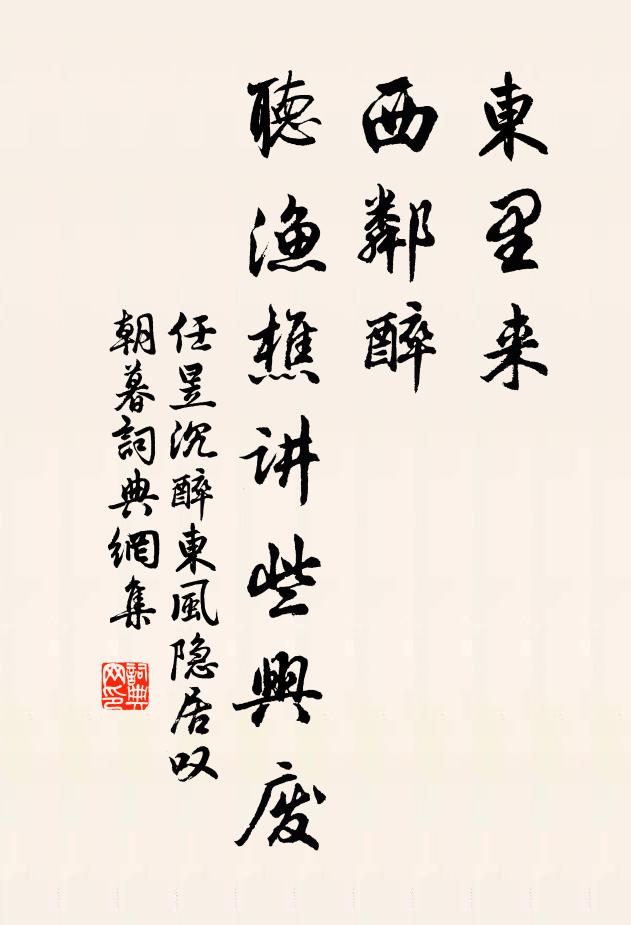 東里来
西鄰醉
聽漁樵讲些興废
任昱沉醉東風隐居叹
朝暮詞典網集
詞典
网印